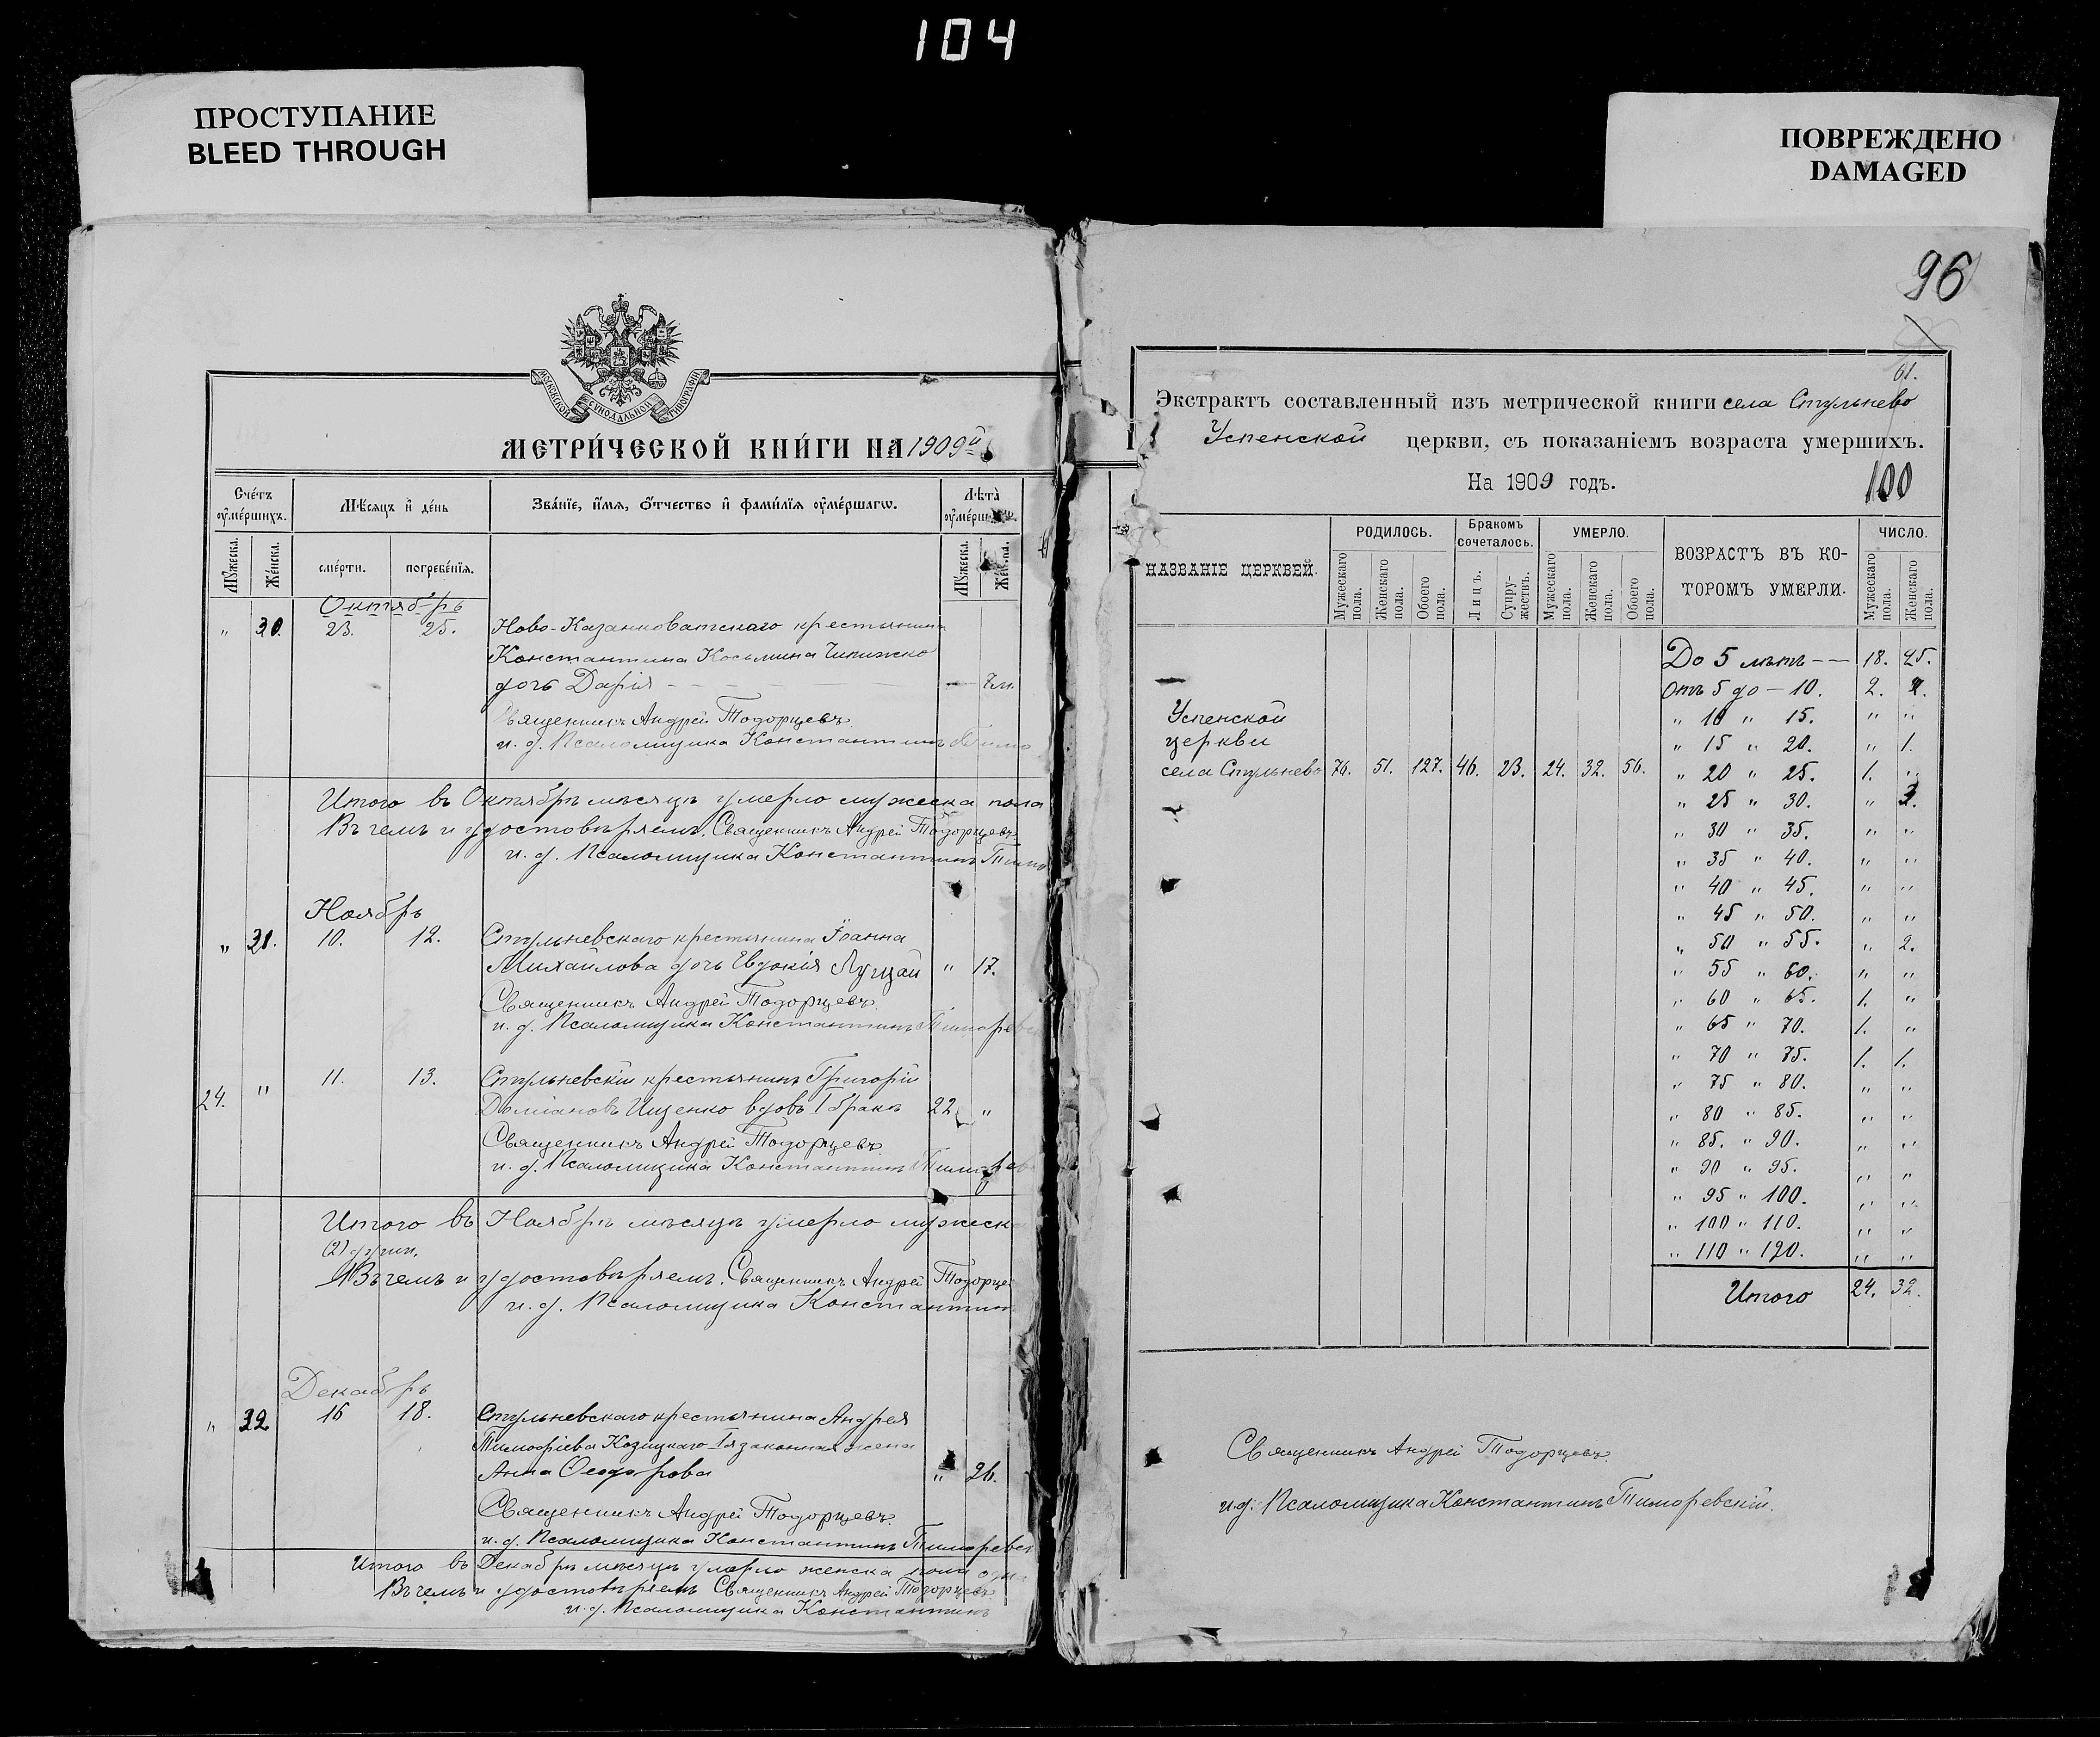 104
ПРОСТУПАНИЕ
BLEED THROUGH
ПОВРЕЖДЕНО
DAMAGED
МОСКОВСКОЙ СѴНОДАЛЬНОЙ ТИПОГРАФІИ
МЕТРИ́ЧЕСКОЙ КНИ́ГИ НА 1909й
Сче́тъ ᲂу҆ме́ршихъ.
Мѣ́сяцъ и҆ де́нь
Зва́нїе, и҆́мя, ѻ҆́тчество и҆ фами́лїя ᲂу҆ме́ршагѡ.
Лѣ́та
Мꙋ́жеска.
Же́нска.
сме́рти.
погребе́нїя.
Мꙋ́жеска.
Октябрь
" 30. 23. 25. Ново-Казанковатскаго крестьянина
Константина Косьмина Чипижко
дочь Дарія — — — — — 7 м.
Священникъ Андрей Тодорцевъ.
и. д. Псаломщика Константинъ
Итого въ Октябрѣ мѣсяцѣ умерло мужеска пола
Въ чемъ и удостовѣряемъ. Священникъ Андрей Тодорцевъ
и. д. Псаломщика Константинъ
Ноябрь
" 31. 10. 12. Стульневскаго крестьянина Іоанна
Михайлова дочь Евдокія Лугцай " 17.
Священникъ Андрей Тодорцевъ.
и. д. Псаломщика Константинъ Тиморевс
24. " 11. 13. Стульневскій крестьянинъ Григорій
Доміановъ Ищенко вдовъ I брака 22 "
Священникъ Андрей Тодорцевъ.
и. д. Псаломщика Константинъ Тиморев
Итого въ Ноябрѣ мѣсяцѣ умерло мужеск
Въ чемъ и удостовѣряемъ. Священникъ Андрей Тодорце
и. д. Псаломщика Константинъ
Декабрь
" 32 16 18. Стульневскаго крестьянина Андрея
Тимофіева Козицкаго I-я законная жена
Анна Ѳеодорова " 26.
Священникъ Андрей Тодорцевъ.
и. д. Псаломщика Константинъ Тиморевс
Итого въ Декабрѣ мѣсяцѣ умерло женска пола
Въ чемъ и удостовѣряемъ Священникъ Андрей Тодорцевъ
и. д. Псаломщика Константинъ
96
61.
Экстрактъ составленный изъ метрической книги села Стульнево
Успенской церкви, съ показаніемъ возраста умершихъ.
На 1909 годъ.
100
НАЗВАНІЕ ЦЕРКВЕЙ.
РОДИЛОСЬ.
Бракомъ сочеталось.
УМЕРЛО.
ВОЗРАСТЪ ВЪ КО-
ТОРОМЪ УМЕРЛИ.
ЧИСЛО.
Мужескаго пола.
Женскаго пола.
Обоего пола.
Лицъ.
Супру-жествъ.
Мужескаго пола.
Женскаго пола.
Обоего пола.
Мужескаго пола.
Женскаго пола.
Успенской
церкви
села Стульнево 76. 51. 127. 46. 23. 24. 32. 56.
До 5 лѣтъ — — 18. 25.
отъ 5 до — 10. 2.
" 10 " 15. " "
" 15 " 20. " 1.
" 20 " 25. 1. "
" 25 " 30. "
" 30 " 35. " "
" 35 " 40. " "
" 40 " 45. " "
" 45 " 50. " "
" 50 " 55. " 2.
" 55 " 60. " "
" 60 " 65. 1. "
" 65 " 70. 1. "
" 70 " 75. 1. 1.
" 75 " 80. " "
" 80 " 85. " "
" 85. " 90. " "
" 90 " 95. " "
" 95 " 100. " "
" 100 " 110. " "
" 110 " 120. " "
Итого 24. 32.
Священникъ Андрей Тодорцевъ.
и.д. Псаломщика Константинъ Тиморевскій.